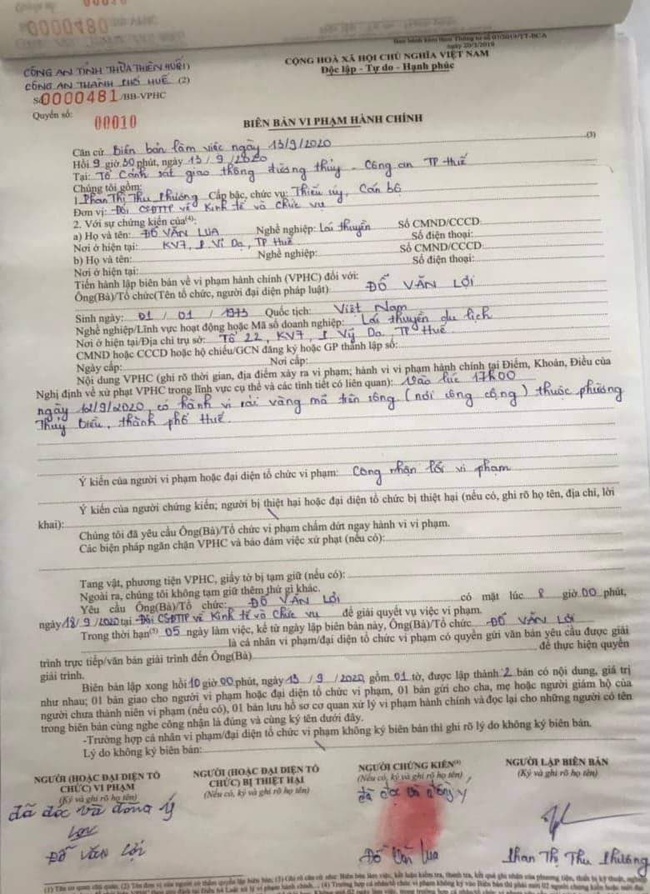 0000480 /BB-VPHC
CÔNG AN TỈNH THỪA THIÊN HUẾ(1)
CÔNG AN THÀNH PHỐ HUẾ (2)
Số 0000481 /BB-VPHC
Quyển số: 00010
ngày 20/3/2019
CỘNG HOÀ XÃ HỘI CHỦ NGHĨA VIỆT NAM
Độc lập - Tự do - Hạnh phúc
BIÊN BẢN VI PHẠM HÀNH CHÍNH
Căn cứ biên bản làm việc ngày 13/9/2020 (3)
Hồi 9 giờ 30 phút, ngày 13/9/2020
Tại: Tổ Cảnh sát giao thông đường thủy - Công an TP Huế
Chúng tôi gồm:
1. Phan Thị Thu Phương Cấp bậc, chức vụ: Thiếu úy, Cán bộ
Đơn vị: Đội CSĐTTP về Kinh tế và chức vụ
2. Với sự chứng kiến của(4):
a) Họ và tên: ĐỖ VĂN LUA Nghề nghiệp: Lái thuyền Số CMND/CCCD
Nơi ở hiện tại: KV7, P. Vĩ Dạ, TP Huế Số điện thoại:
b) Họ và tên: Nghề nghiệp: Số CMND/CCCD
Nơi ở hiện tại: Số điện thoại:
Tiến hành lập biên bản về vi phạm hành chính (VPHC) đối với:
Ông(Bà)/Tổ chức(Tên tổ chức, người đại diện pháp luật): ĐỖ VĂN LỢI
Sinh ngày: 01 / 01 / 1973 Quốc tịch: Việt Nam
Nghề nghiệp/Lĩnh vực hoạt động hoặc Mã số doanh nghiệp: Lái thuyền du lịch
Nơi ở hiện tại/Địa chỉ trụ sở: Tổ 22, KV7, P. Vỹ Dạ, TP Huế
CMND hoặc CCCD hoặc hộ chiếu/GCN đăng ký hoặc GP thành lập số:
Ngày cấp: Nơi cấp:
Nội dung VPHC (ghi rõ thời gian, địa điểm xảy ra vi phạm; hành vi vi phạm hành chính tại Điểm, Khoản, Điều của
Nghị định về xử phạt VPHC trong lĩnh vực cụ thể và các tình tiết có liên quan): Vào lúc 17h00
ngày 12/9/2020, có hành vi rải vàng mã trên sông (nơi công cộng) thuộc phường
Thủy Biều, thành phố Huế.
Ý kiến của người vi phạm hoặc đại diện tổ chức vi phạm: Công nhận lỗi vi phạm
Ý kiến của người chứng kiến; người bị thiệt hại hoặc đại diện tổ chức bị thiệt hại (nếu có, ghi rõ họ tên, địa chỉ, lời
khai):
Chúng tôi đã yêu cầu Ông(Bà)/Tổ chức vi phạm chấm dứt ngay hành vi vi phạm.
Các biện pháp ngăn chặn VPHC và bảo đảm việc xử phạt (nếu có):
Tang vật, phương tiện VPHC, giấy tờ bị tạm giữ (nếu có):
Ngoài ra, chúng tôi không tạm giữ thêm thứ gì khác.
Yêu cầu Ông(Bà)/Tổ chức: ĐỖ VĂN LỢI có mặt lúc 8 giờ 00 phút,
ngày 18/9/2020 tại Đội CSĐTTP về Kinh tế và Chức vụ để giải quyết vụ việc vi phạm.
Trong thời hạn(5) 05 ngày làm việc, kể từ ngày lập biên bản này, Ông(Bà)/Tổ chức ĐỖ VĂN LỢI
là cá nhân vi phạm/đại diện tổ chức vi phạm có quyền gửi văn bản yêu cầu được giải
trình trực tiếp/văn bản giải trình đến Ông(Bà) để thực hiện quyền
giải trình.
Biên bản lập xong hồi 10 giờ 00 phút, ngày 13/9/2020, gồm 01 tờ, được lập thành 2 bản có nội dung, giá trị
như nhau; 01 bản giao cho người vi phạm hoặc đại diện tổ chức vi phạm, 01 bản gửi cho cha, mẹ hoặc người giám hộ của
người chưa thành niên vi phạm (nếu có), 01 bản lưu hồ sơ cơ quan xử lý vi phạm hành chính và đọc lại cho những người có tên
trong biên bản cùng nghe công nhận là đúng và cùng ký tên dưới đây.
-Trường hợp cá nhân vi phạm/đại diện tổ chức vi phạm không ký biên bản thì ghi rõ lý do không ký biên bản.
Lý do không ký biên bản:
NGƯỜI (HOẶC ĐẠI DIỆN TỔ CHỨC) VI PHẠM
(Ký và ghi rõ họ tên)
đã đọc và đồng ý
Lợi
ĐỖ VĂN LỢI
NGƯỜI (HOẶC ĐẠI DIỆN TỔ CHỨC) BỊ THIỆT HẠI
(Nếu có, ký và ghi rõ họ tên)
NGƯỜI CHỨNG KIẾN(4)
(Nếu có, ký và ghi rõ họ tên)
đã đọc và đồng ý
Đỗ Văn Lua
NGƯỜI LẬP BIÊN BẢN
(Ký và ghi rõ họ tên)
Phan Thị Thu Phương